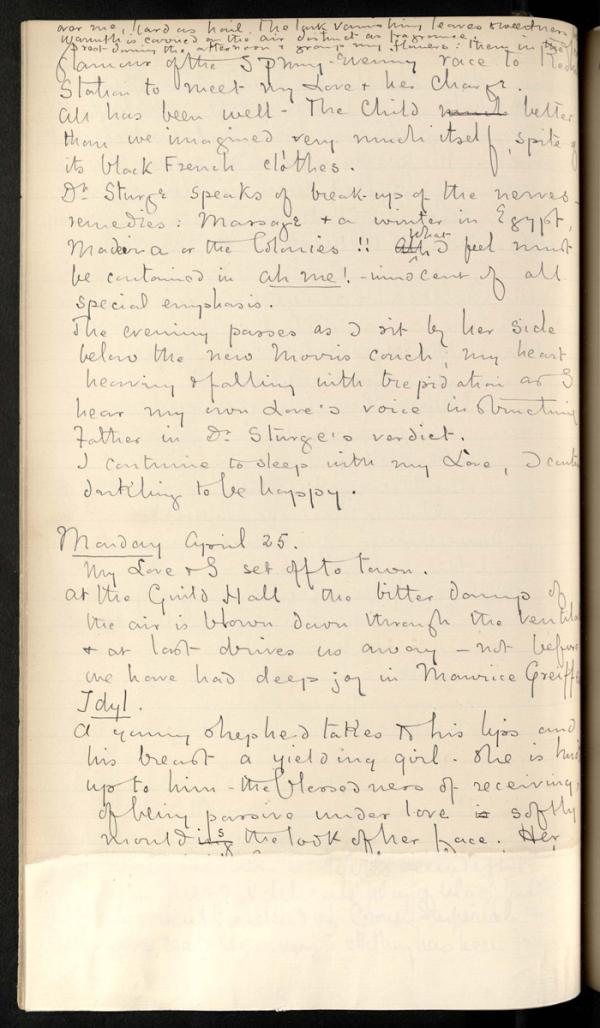 over me, hard as hail. The lark vanishing leaves sweetness
Warmth is carried on the air distinct as fragrance.
I rest during the afternoon & group my flowers: then in the
glamour of the Spring-evening race to
Station to meet my Love & her charge.
All has been well - The Child much better
than we imagined very much itself, spite of
its black French clothes.
Dr Sturge speaks of break-up of the nerves -
remedies: Massage & a winter in Egypt,
Madeira or the Colonies!! All what I feel must
be contained in ah me! - innocent of all
special emphasis.
The evening passes as I sit by her side
below the new Morris couch, my heart
heaving & falling with trepidation as I
hear my own Love's voice instructing
Father in Dr Sturge's verdict.
I continue to sleep with my Love, I
darkling to be happy.
Monday April 25.
My Love & I set off to town.
At the Guild Hall the bitter damp of
the air is blown down through the
& at last drives us away - not before
we have had deep joy in Maurice
Idyl.
A young shepherd takes to his lips and
his breast a yielding girl. She is
up to him - the blessedness of receiving,
of being passive under love is softly
moulding s the look of her face. Her